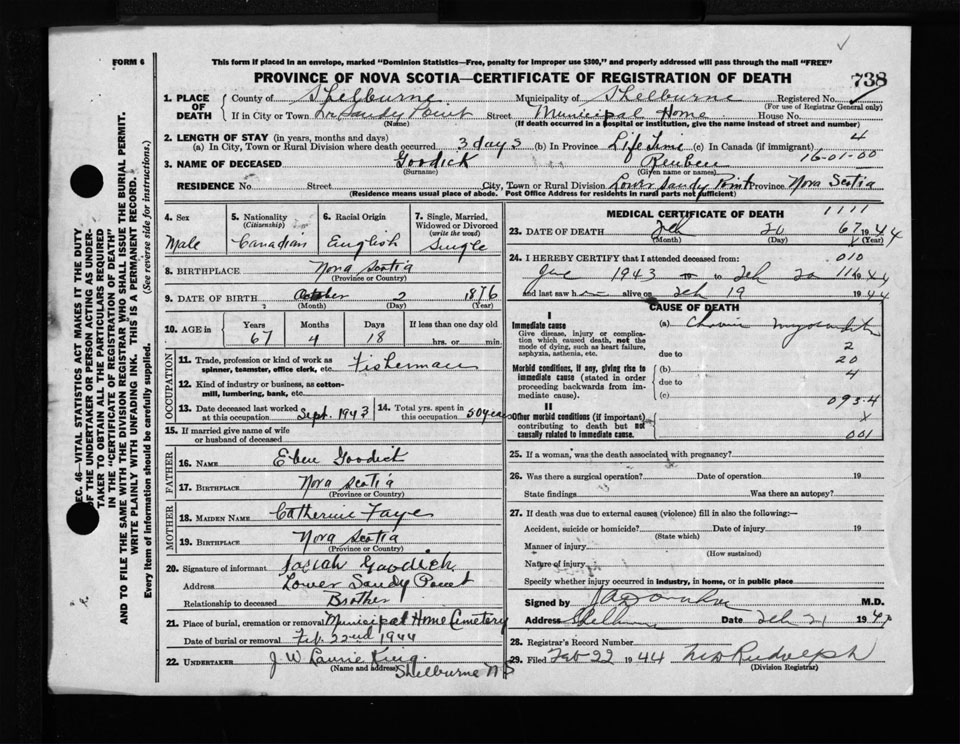 FORM 6
This form if placed in an envelope, marked "Dominion Statistics—Free, penalty for improper use $300," and properly addressed will pass through the mail "FREE"
PROVINCE OF NOVA SCOTIA—CERTIFICATE OF REGISTRATION OF DEATH
738
1. PLACE OF DEATH
County of Shelburne Municipality of Shelburne Registered No.
(For use of Registrar General only)
If in City or Town Sandy Point Street Municipal Home House No.
(Name) (If death occurred in a hospital or institution, give the name instead of street and number)
2. LENGTH OF STAY (in years, months and days)
(a) In City, Town or Rural Division where death occurred 3 days (b) In Province Life Time (c) In Canada (if immigrant) 4
3. NAME OF DECEASED Goodick Reuben 16-01-00
(Surname) (Given name or names)
RESIDENCE No. Street City, Town or Rural Division Lower Sandy Point Province Nova Scotia
(Residence means usual place of abode. Post Office Address for residents in rural parts not sufficient)
4. Sex Male
5. Nationality (Citizenship) Canadian
6. Racial Origin English
7. Single, Married, Widowed or Divorced (write the word) Single
8. BIRTHPLACE Nova Scotia
(Province or Country)
9. DATE OF BIRTH October 2 1876
(Month) (Day) (Year)
10. AGE in Years 67 Months 4 Days 18 If less than one day old hrs. or min.
OCCUPATION
11. Trade, profession or kind of work as spinner, teamster, office clerk, etc. Fisherman
12. Kind of industry or business, as cotton-mill, lumbering, bank, etc.
13. Date deceased last worked at this occupation Sept. 1943
14. Total yrs. spent in this occupation 50 years
15. If married give name of wife or husband of deceased
FATHER
16. NAME Eben Goodick
17. BIRTHPLACE Nova Scotia
(Province or Country)
MOTHER
18. MAIDEN NAME Catherine Faye
19. BIRTHPLACE Nova Scotia
(Province or Country)
20. Signature of informant Josiah Goodick
Address Lower Sandy Point
Relationship to deceased Brother
21. Place of burial, cremation or removal Municipal Home Cemetery
Date of burial or removal Feb. 22nd 1944
22. UNDERTAKER J. W. Laurie King
(Name and address) Shelburne NS
MEDICAL CERTIFICATE OF DEATH 1111
23. DATE OF DEATH Feb 20 67 1944
(Month) (Day) (Year)
24. I HEREBY CERTIFY that I attended deceased from: 010
1943 to Feb 20 116 1944
and last saw h alive on Feb 19 1944
CAUSE OF DEATH
I
Immediate cause
Give disease, injury or complication which caused death, not the mode of dying, such as heart failure, asphyxia, asthenia, etc.
(a) Chronic myocarditis
due to 2
20
Morbid conditions, if any, giving rise to immediate cause (stated in order proceeding backwards from immediate cause).
(b) 4
due to
(c) 093.4
II
Other morbid conditions (if important) contributing to death but not causally related to immediate cause.
X
001
25. If a woman, was the death associated with pregnancy?
26. Was there a surgical operation? Date of operation 19
State findings Was there an autopsy?
27. If death was due to external causes (violence) fill in also the following:—
Accident, suicide or homicide? Date of injury 19
(State which)
Manner of injury
(How sustained)
Nature of injury
Specify whether injury occurred in industry, in home, or in public place
Signed by M.D.
Address Shelburne Date Feb 21 194
28. Registrar's Record Number
29. Filed Feb 22 1944 Rudolph
(Division Registrar)
SEC. 46—VITAL STATISTICS ACT MAKES IT THE DUTY
OF THE UNDERTAKER OR PERSON ACTING AS UNDER-
TAKER TO OBTAIN ALL THE PARTICULARS REQUIRED
IN THE "CERTIFICATE OF REGISTRATION OF DEATH"
AND TO FILE THE SAME WITH THE DIVISION REGISTRAR WHO SHALL ISSUE THE BURIAL PERMIT.
WRITE PLAINLY WITH UNFADING INK. THIS IS A PERMANENT RECORD.
Every item of information should be carefully supplied. (See reverse side for instructions.)